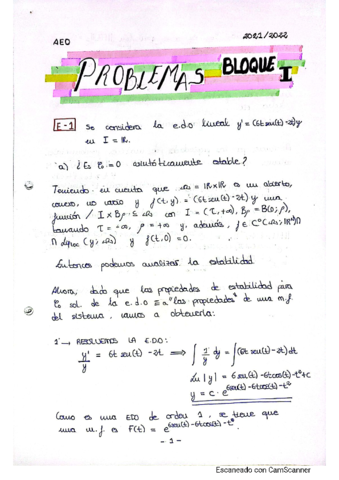 AEO
2021/2022
PROBLEMAS BLOQUE I
E-1 Se considera la e.d.o lineal y' = (6t sen(t) - 2t)y
en I = ℝ.
a) ¿Es φ₀ ≡ 0 asintóticamente estable?
Teniendo en cuenta que Ω = ℝ×ℝ es un abierto,
conexo, no vacío y f(t,y) = (6t sen(t) - 2t)y una
función / I × Bρ ⊆ Ω con I = (τ, +∞), Bρ = B(0; ρ),
tomando τ = -∞, ρ = +∞ y, además, f ∈ C⁰(Ω; ℝ)
∩ Lip (y; Ω) y f(t,0) = 0.
Entonces podemos analizar la estabilidad.
Ahora, dado que las propiedades de estabilidad para
sol. de la e.d.o ≡ a "las propiedades" de una m.f.
del sistema, vamos a obtenerla:
1° → RESOLVEMOS LA E.D.O:
y'/y = 6t sen(t) - 2t ⟹ ∫ 1/y dy = ∫(6t sen(t) - 2t)dt
ln|y| = 6sen(t) - 6tcos(t) - t² + c
y = c · e^(6sen(t) - 6tcos(t) - t²)
Como es una EDO de orden 1, se tiene que
una m.f. es F(t) = e^(6sen(t) - 6tcos(t) - t²).
- 1 -
Escaneado con CamScanner